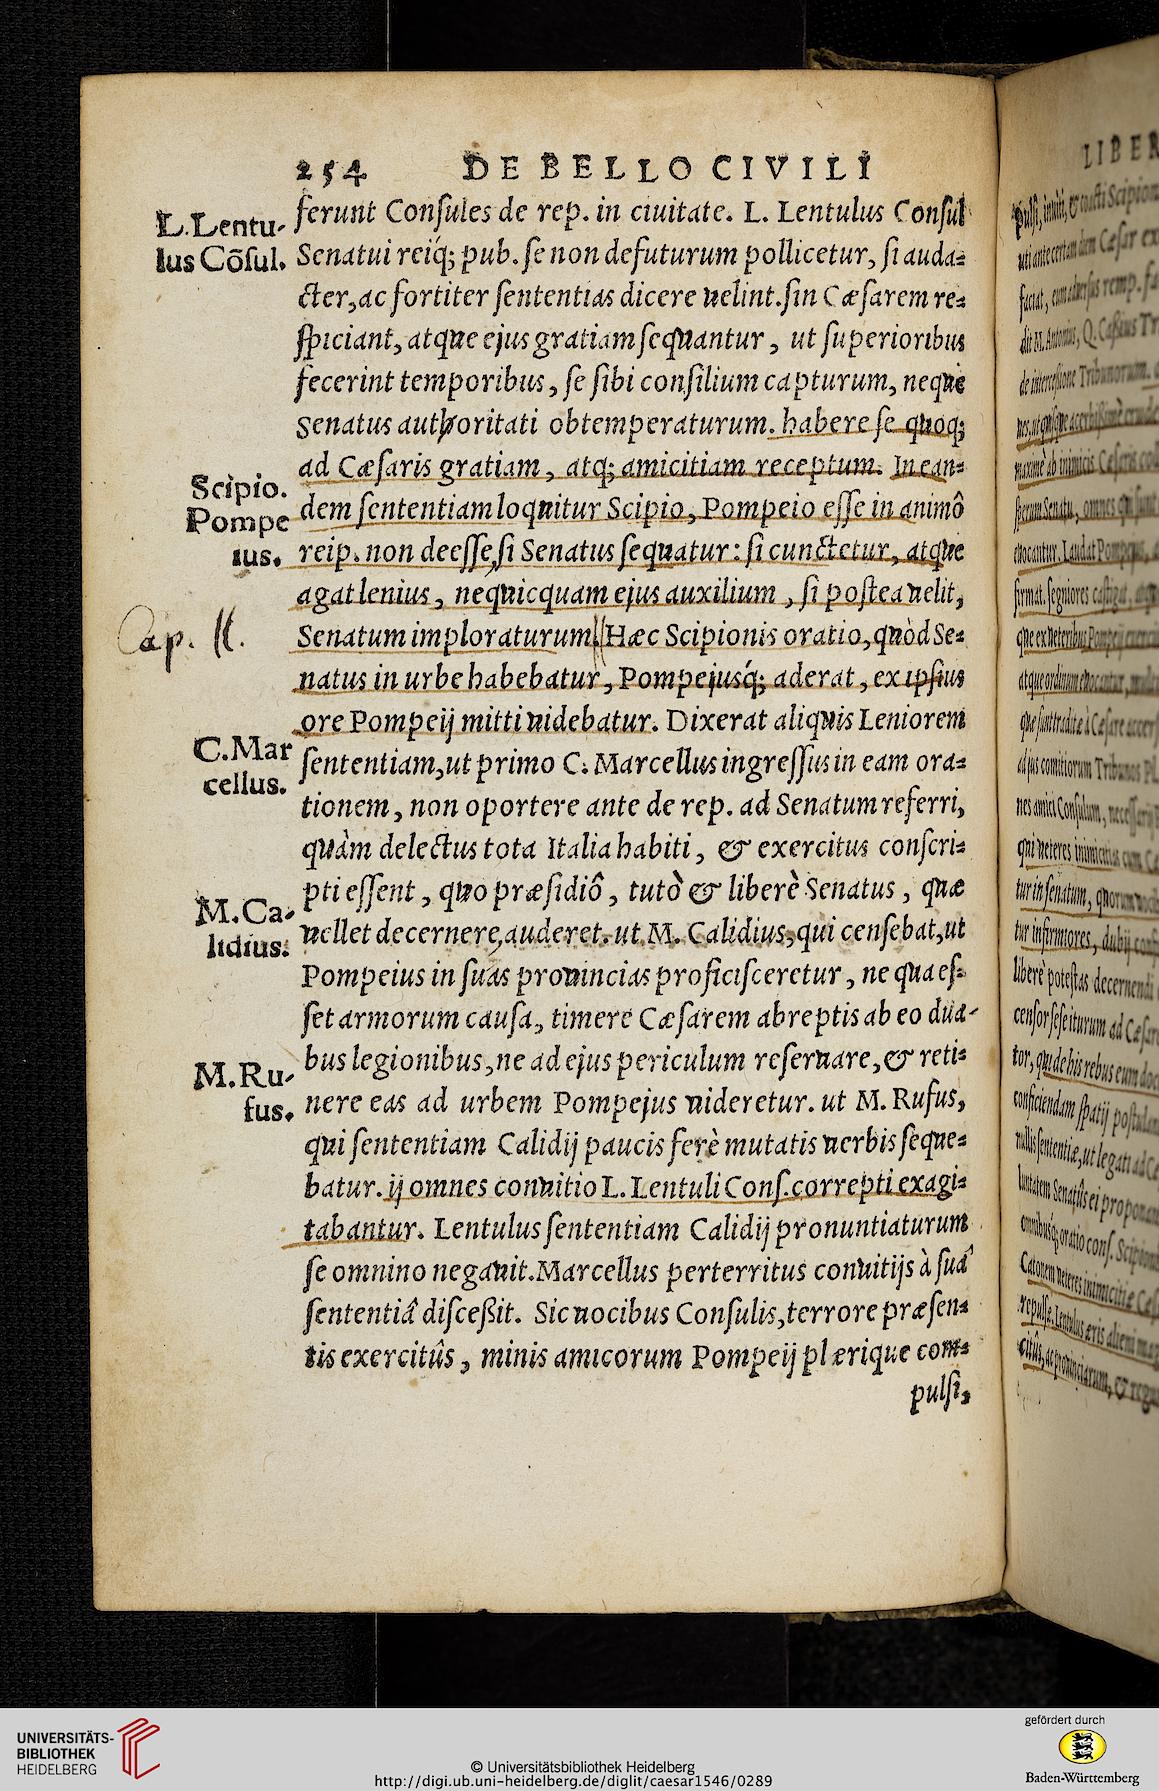 254 DE BELLO CIVILI
L. Lentu-
lus Cõsul.
ferunt Conſules de rep. in ciuitate. L. Lentulus Conſul
Senatui reiq́; pub. ſe non defuturum pollicetur, ſi auda-
cter, ac fortiter ſententias dicere uelint. ſin Cæſarem re-
ſpiciant, atque ejus gratiam ſequantur, ut ſuperioribus
fecerint temporibus, ſe ſibi conſilium capturum, neque
Senatus authoritati obtemperaturum. habere ſe quoq;
ad Cæſaris gratiam, atq; amicitiam receptum. In ean-
Scipio.
Pompe
ius.
dem ſententiam loquitur Scipio, Pompeio eſſe in animô
reip. non deeſſe, ſi Senatus ſequatur: ſi cunctetur, atque
agat lenius, nequicquam ejus auxilium, ſi poſtea uelit,
Cap. II.
Senatum imploraturum. Hæc Scipionis oratio, quòd Se-
natus in urbe habebatur, Pompejusq́; aderat, ex ipſius
ore Pompeij mitti uidebatur. Dixerat aliquis Leniorem
C. Mar
cellus.
ſententiam, ut primo C. Marcellus ingreſſus in eam ora-
tionem, non oportere ante de rep. ad Senatum referri,
quàm delectus tota Italia habiti, & exercitus conſcri-
pti eſſent, quo præſidiô, tutò & liberè Senatus, quæ
M. Ca-
lidius.
uellet decernere, auderet. ut M. Calidius, qui cenſebat, ut
Pompeius in ſuas prouincias proficiſceretur, ne qua eſ-
ſet armorum cauſa, timere Cæſarem abreptis ab eo dua-
bus legionibus, ne ad ejus periculum reſeruare, & reti-
M. Ru-
fus.
nere eas ad urbem Pompejus uideretur. ut M. Rufus,
qui ſententiam Calidij paucis ferè mutatis uerbis ſeque-
batur. ij omnes conuitio L. Lentuli Conſ. correpti exagi-
tabantur. Lentulus ſententiam Calidij pronuntiaturum
ſe omnino negauit. Marcellus perterritus conuitijs à ſuâ
ſententiâ diſceßit. Sic uocibus Conſulis, terrore præſen-
tis exercitûs, minis amicorum Pompeij plærique com-
pulſi,
LIBER
UNIVERSITÄTS-
BIBLIOTHEK
HEIDELBERG
© Universitätsbibliothek Heidelberg
http://digi.ub.uni-heidelberg.de/diglit/caesar1546/0289
gefördert durch
Baden-Württemberg